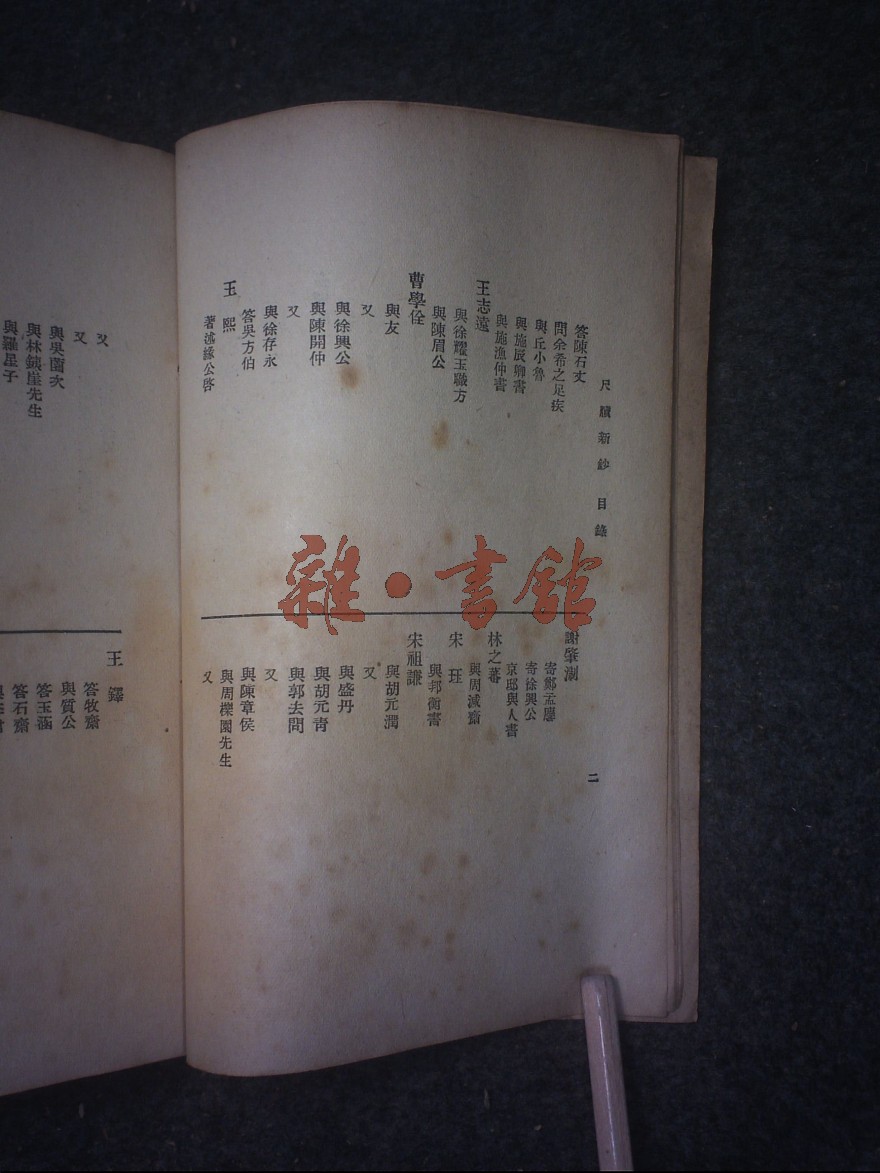 尺牘新鈔 目錄
二
答陳石丈
問余希之足疾
與丘小魯
與施辰卿書
與施漁仲書
王志遠
與徐耀玉職方
與陳眉公
曹學佺
與友
又
與徐興公
與陳開仲
又
與徐存永
答吳方伯
王熙
著述緣公啓
謝肇淛
寄鄭孟麐
寄徐興公
京邸與人書
林之蕃
與周減齋
宋珏
與邦衡書
宋祖謙
與胡元潤
又
與盛丹
與胡元青
與郭去問
又
與陳章侯
與周櫟園先生
又
又
又
與吳薗次
與林鐵崖先生
與羅星子
王鐸
答牧齋
與質公
答玉涵
答石齋
雜·書館